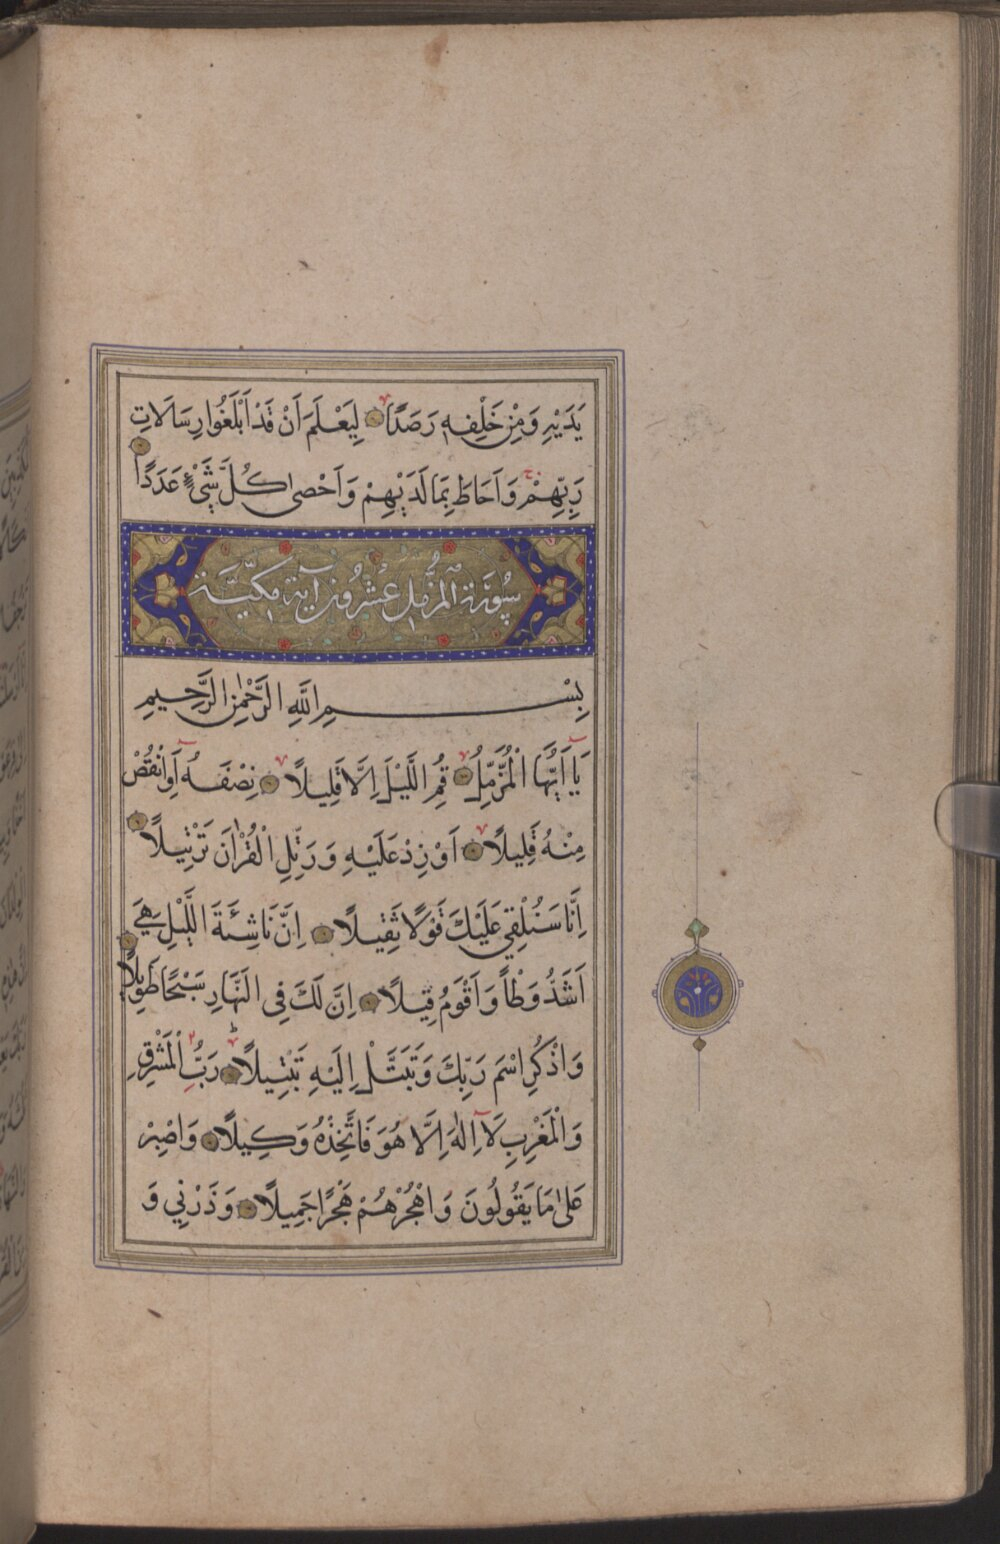 يَدَيْهِ وَمِنْ خَلْفِهٖ رَصَدًا لِيَعْلَمَ اَنْ قَدْ اَبْلَغُوا رِسَالَاتِ
رَبِّهِمْ وَاَحَاطَ بِمَا لَدَيْهِمْ وَاَحْصٰى كُلَّ شَيْءٍ عَدَدًا
سُورَةُ الْمُزَّمِّل عِشْرُونَ آيَة مَكِّيَّة
بِسْمِ اللّٰهِ الرَّحْمٰنِ الرَّحِيمِ
يَا اَيُّهَا الْمُزَّمِّلُ قُمِ الَّيْلَ اِلَّا قَلِيلًا نِصْفَهُ اَوِ انْقُصْ
مِنْهُ قَلِيلًا اَوْ زِدْ عَلَيْهِ وَرَتِّلِ الْقُرْاٰنَ تَرْتِيلًا
اِنَّا سَنُلْقِي عَلَيْكَ قَوْلًا ثَقِيلًا اِنَّ نَاشِئَةَ الَّيْلِ هِيَ
اَشَدُّ وَطْاً وَاَقْوَمُ قِيلًا اِنَّ لَكَ فِي النَّهَارِ سَبْحًا طَوِيلًا
وَاذْكُرِ اسْمَ رَبِّكَ وَتَبَتَّلْ اِلَيْهِ تَبْتِيلًا رَبُّ الْمَشْرِقِ
وَالْمَغْرِبِ لَا اِلٰهَ اِلَّا هُوَ فَاتَّخِذْهُ وَكِيلًا وَاصْبِرْ
عَلٰى مَا يَقُولُونَ وَاهْجُرْهُمْ هَجْرًا جَمِيلًا وَذَرْنِي وَ